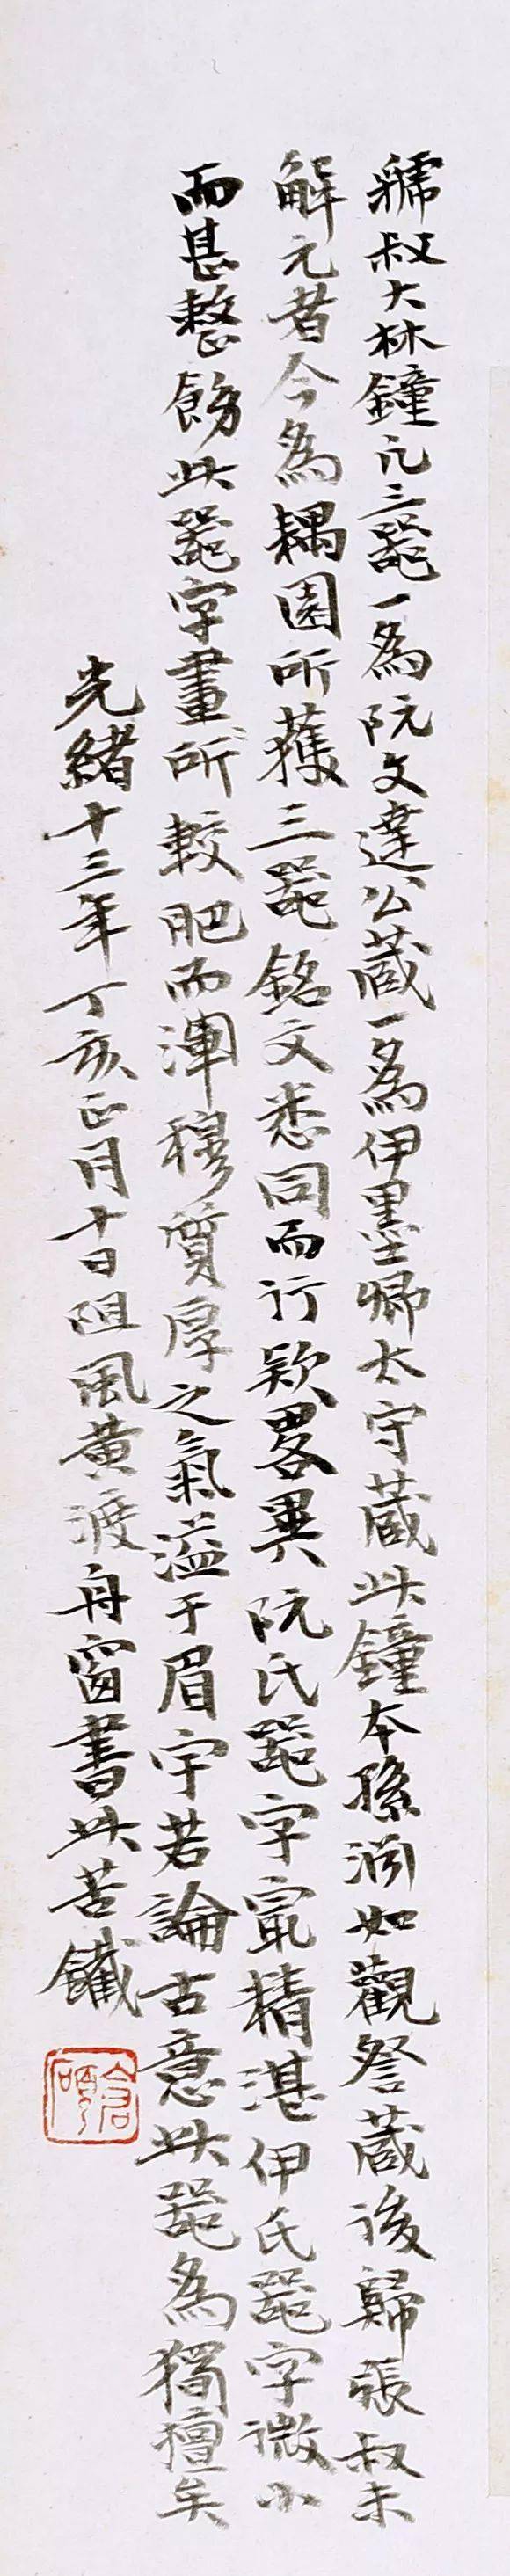 虢叔大林鐘凡三器一為阮文達公藏一為伊墨卿太守藏此鐘本孫淵如觀詧藏後歸張叔未
解元者今為耦園所獲三器銘文悉同而行款畧異阮氏器字寍精湛伊氏器字微小
而甚整飭此器字畫所較肥而渾穆質厚之氣溢于眉宇若論古意此器為獨擅矣
光緒十三年丁亥正月十日阻風黃渡舟窗書此苦鐵
倉碩